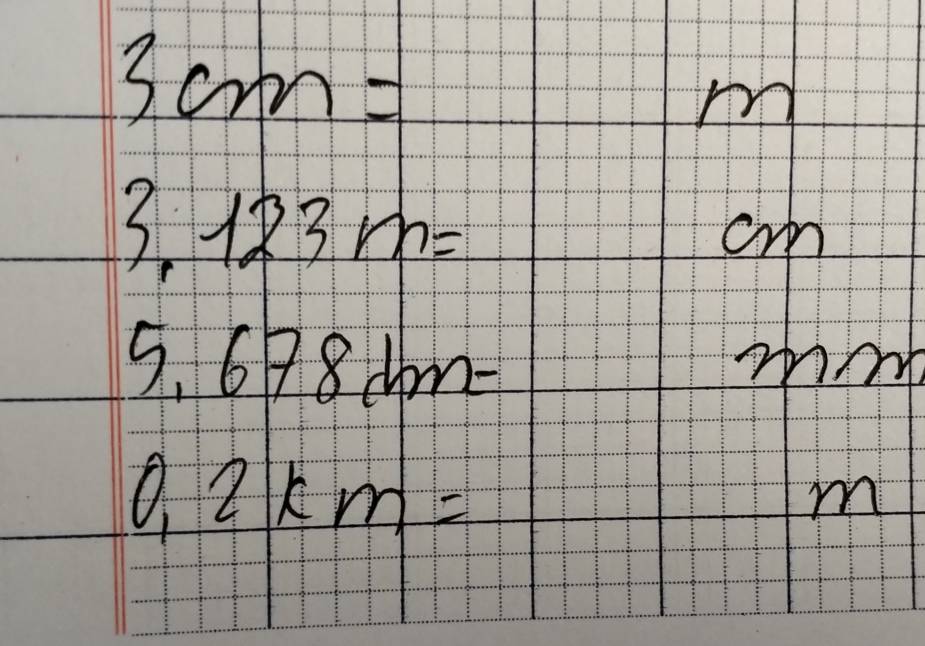 3 cm = m
3,123 m = cm
5,678 dm = mm
0,2 km = m